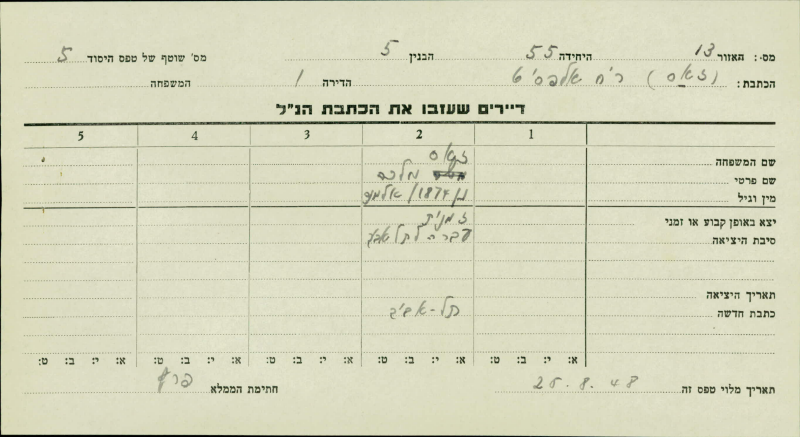 מס׳: האזור 13 היחידה 55 הבנין 5 מס׳ שוטף של טפס היסוד 5
הכתבת: (זאאס) רח׳ הדירה 1 המשפחה
דיירים שעזבו את הכתבת הנ״ל
1 2 3 4 5
שם המשפחה
שם פרטי מלכה
מין וגיל נ/1874/ אלמנה
יצא באופן קבוע או זמני זמנית
סיבת היציאה עברה לתל אביב
תאריך היציאה
כתבת חדשה תל-אביב
א: י: ב: ט: א: י: ב: ט: א: י: ב: ט: א: י: ב: ט: א: י: ב: ט:
תאריך מלוי טפס זה 25.8.48 חתימת הממלא